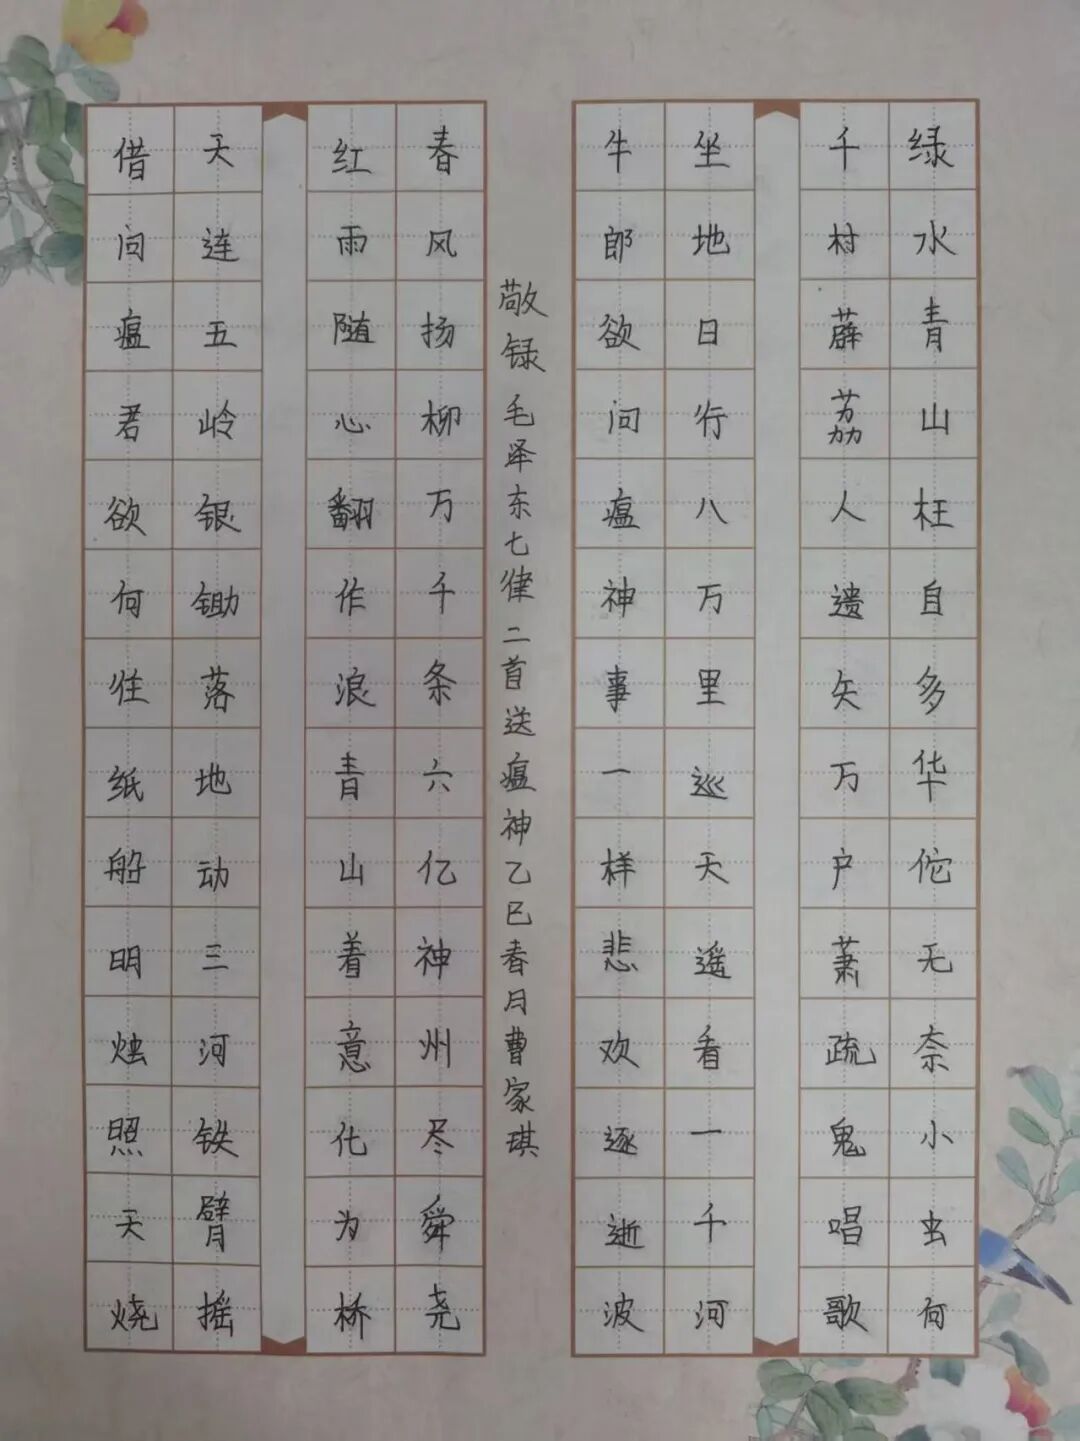 绿水青山枉自多华佗无奈小虫何
千村薜荔人遗矢万户萧疏鬼唱歌
坐地日行八万里巡天遥看一千河
牛郎欲问瘟神事一样悲欢逐逝波
敬録毛泽东七律二首送瘟神乙巳春月曹家琪
春风扬柳万千条六亿神州尽舜尧
红雨随心翻作浪青山着意化为桥
天连五岭银锄落地动三河铁臂摇
借问瘟君欲何往纸船明烛照天烧